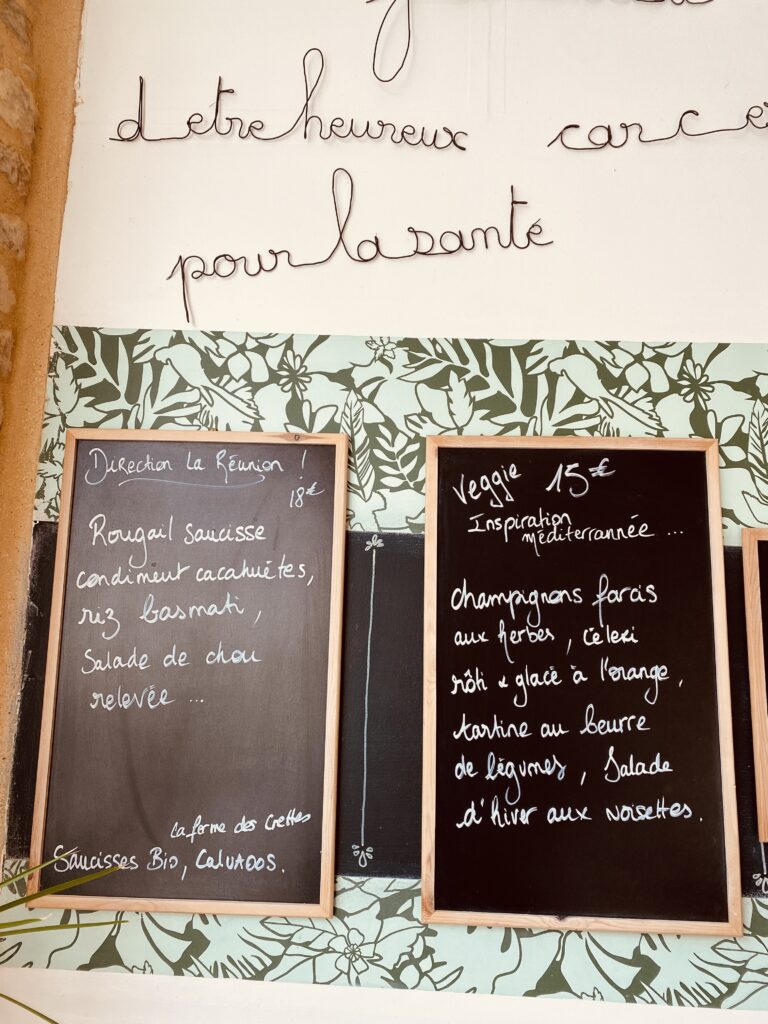 d'etre heureux car c'e
pour la santé
Direction La Réunion !
18€
Rougail saucisse
condiment cacahuètes,
riz basmati,
Salade de chou
relevée ...
la ferme des Crettes
Saucisses Bio, CALVADOS.
Veggie 15€
Inspiration
méditerrannée ...
champignons farcis
aux herbes, céleri
rôti & glacé à l'orange,
tartine au beurre
de légumes, Salade
d'hiver aux noisettes.